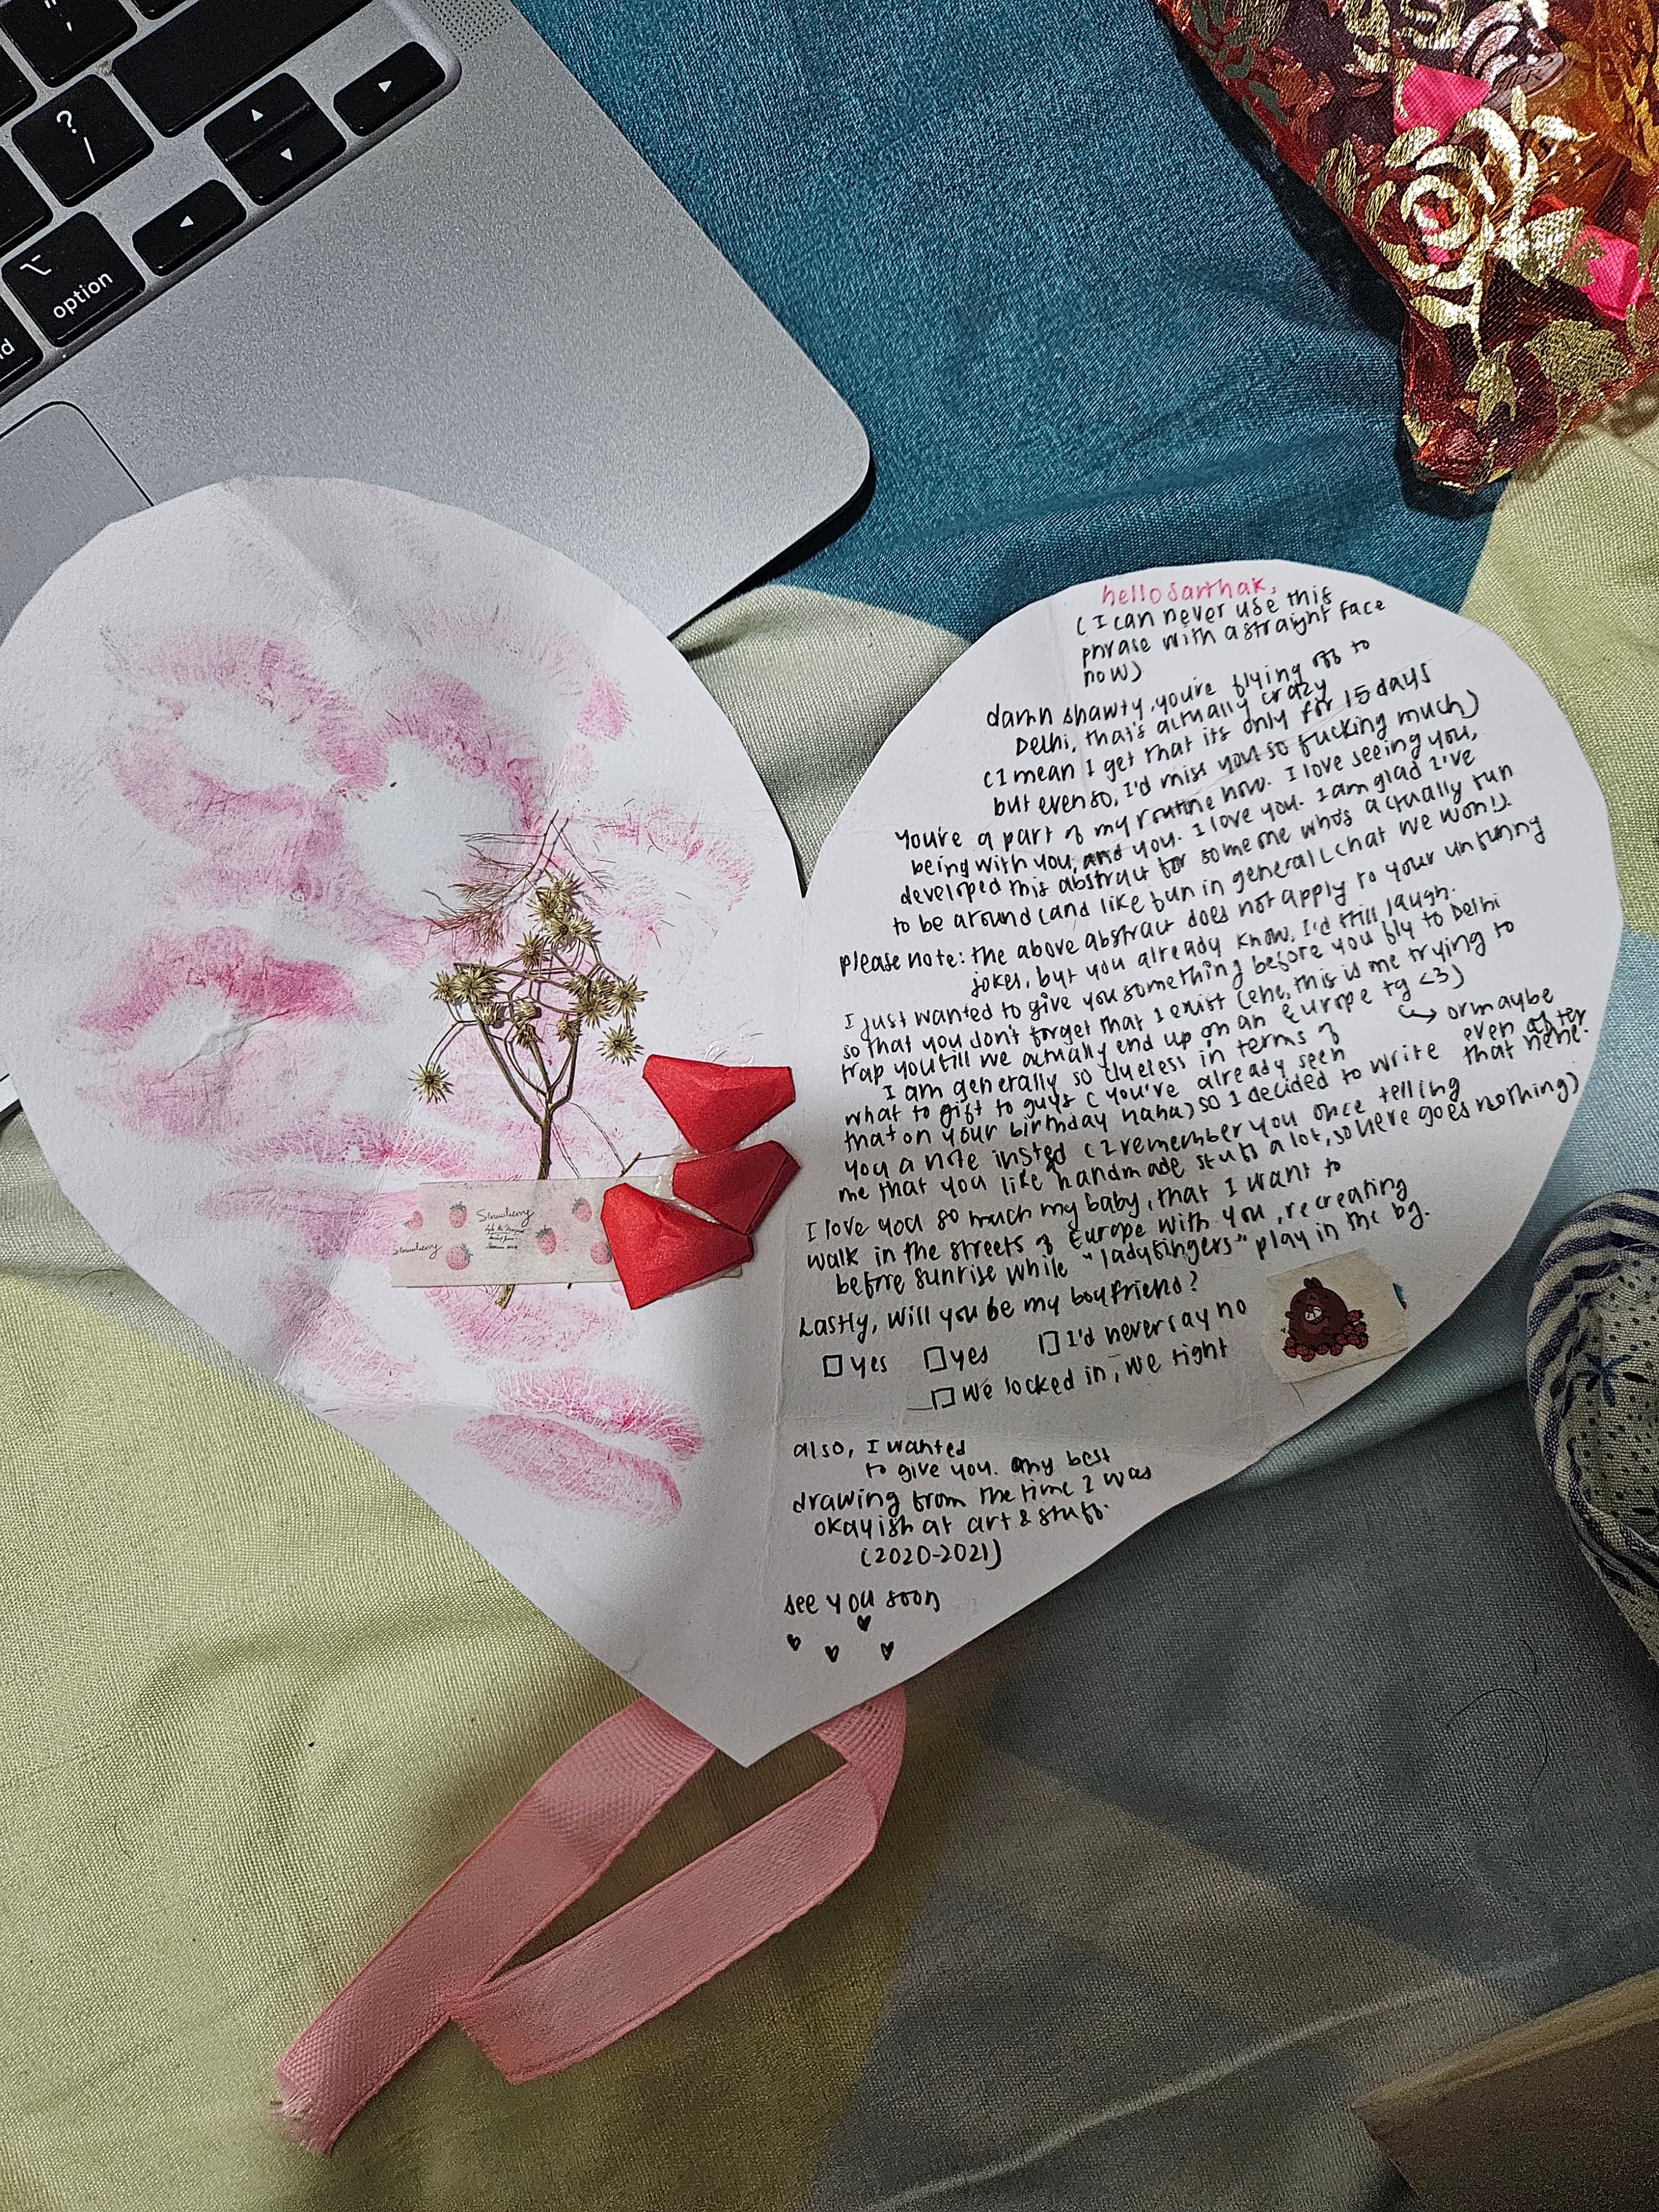 ?
/
option
hello Sarthak,
( I can never use this
phrase with a straight face
now)
damn shawty, you're flying off to
Delhi, that's actually crazy
(I mean I get that its only for 15 days
but even so, I'd miss you so fucking much)
You're a part of my routine now. I love seeing you,
being with you, and you. I love you. I am glad I've
developed this abstract for someone who's actually fun
to be around (and like fun in general (chat we won!).
please note: the above abstract does not apply to your unfunny
jokes, but you already know, I'd still laugh.
I just wanted to give you something before you fly to Delhi
so that you don't forget that I exist (ehe, this is me trying to
trap you till we actually end up on an Europe tg <3)
↪ or maybe
even after
that hehe.
I am generally so clueless in terms of
what to gift to guys ( you've already seen
that on your birthday haha) so I decided to write
you a note insted (I remember you once telling
me that you like handmade stuff a lot, so here goes nothing)
I love you so much my baby, that I want to
walk in the streets of Europe with you, recreating
before sunrise while "ladyfingers" play in the bg.
Lastly, will you be my boyfriend?
☐ yes ☐ yes ☐ I'd never say no
☐ We locked in, we tight
also, I wanted
to give you. my best
drawing from the time I was
okayish at art & stuff.
(2020-2021)
see you soon
Strawberry
Strawberry